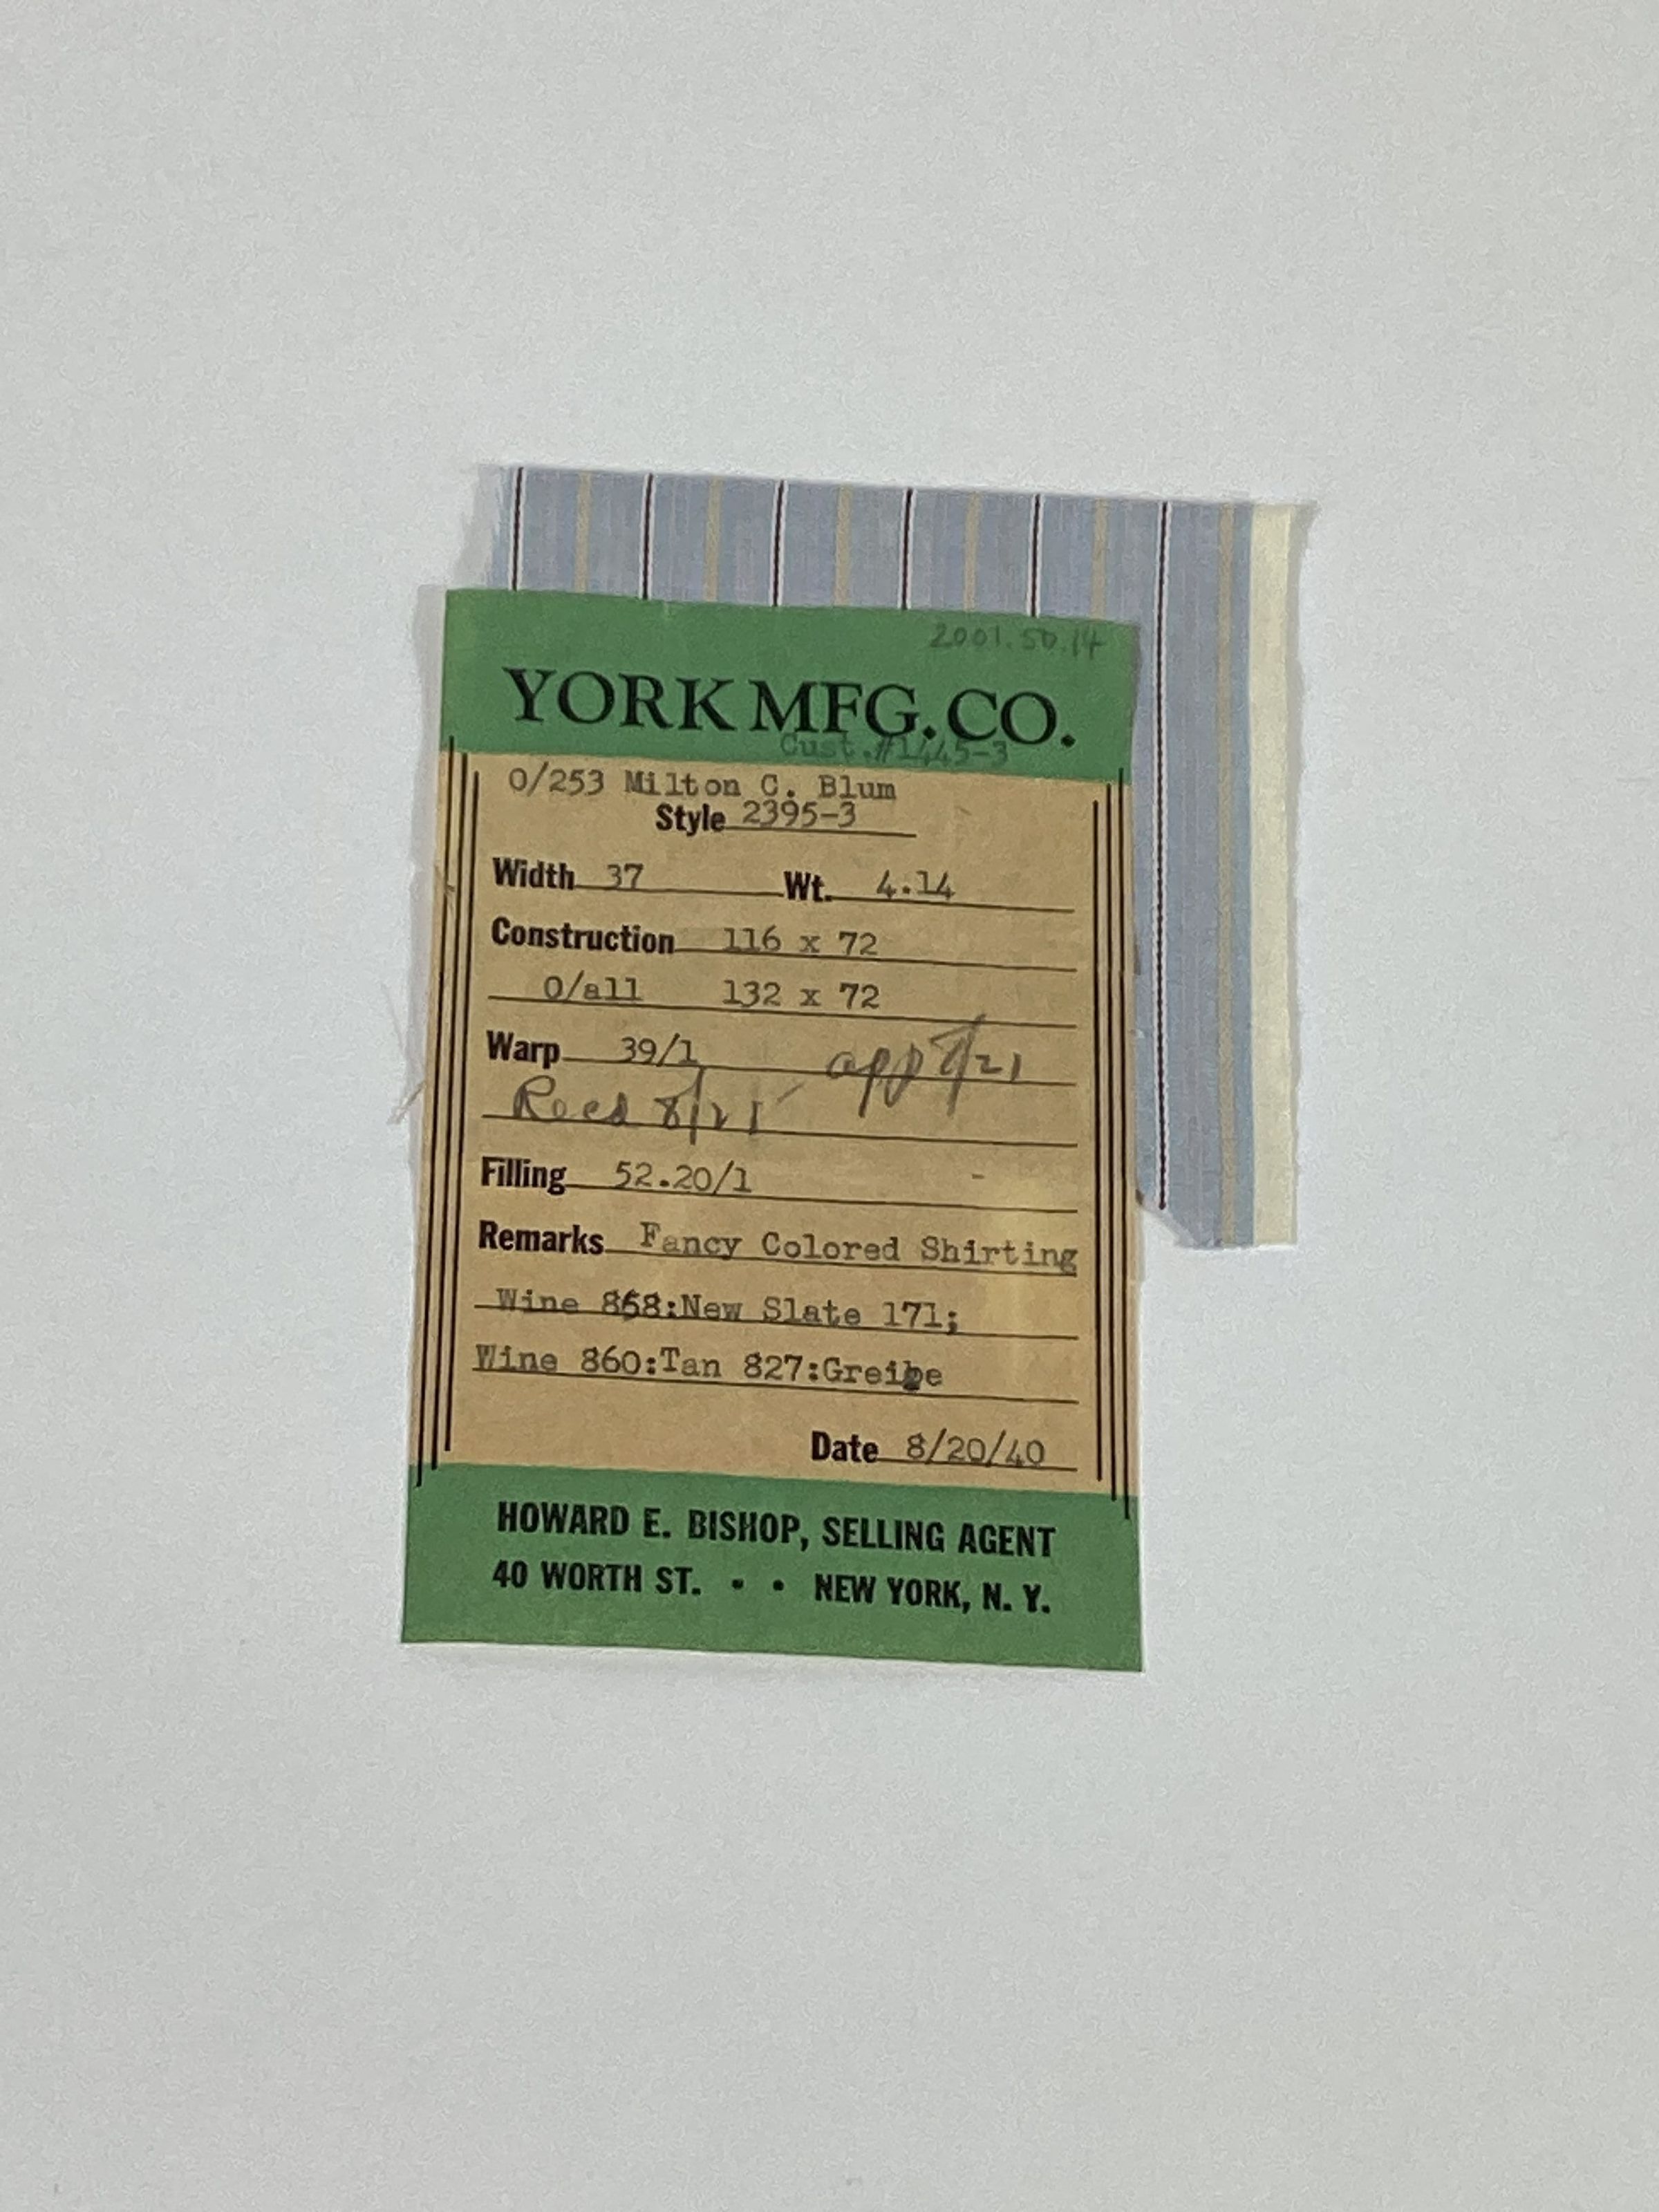 2001.50.14
YORK MFG. CO.
Cust.#1445-3
O/253 Milton C. Blum
Style 2395-3
Width 37 Wt. 4.14
Construction 116 x 72
O/all 132 x 72
Warp 39/1 app 8/21
Recd 8/21
Filling 52.20/1 -
Remarks Fancy Colored Shirting
Wine 868:New Slate 171;
Wine 860:Tan 827:Greige
Date 8/20/40
HOWARD E. BISHOP, SELLING AGENT
40 WORTH ST. • • NEW YORK, N. Y.